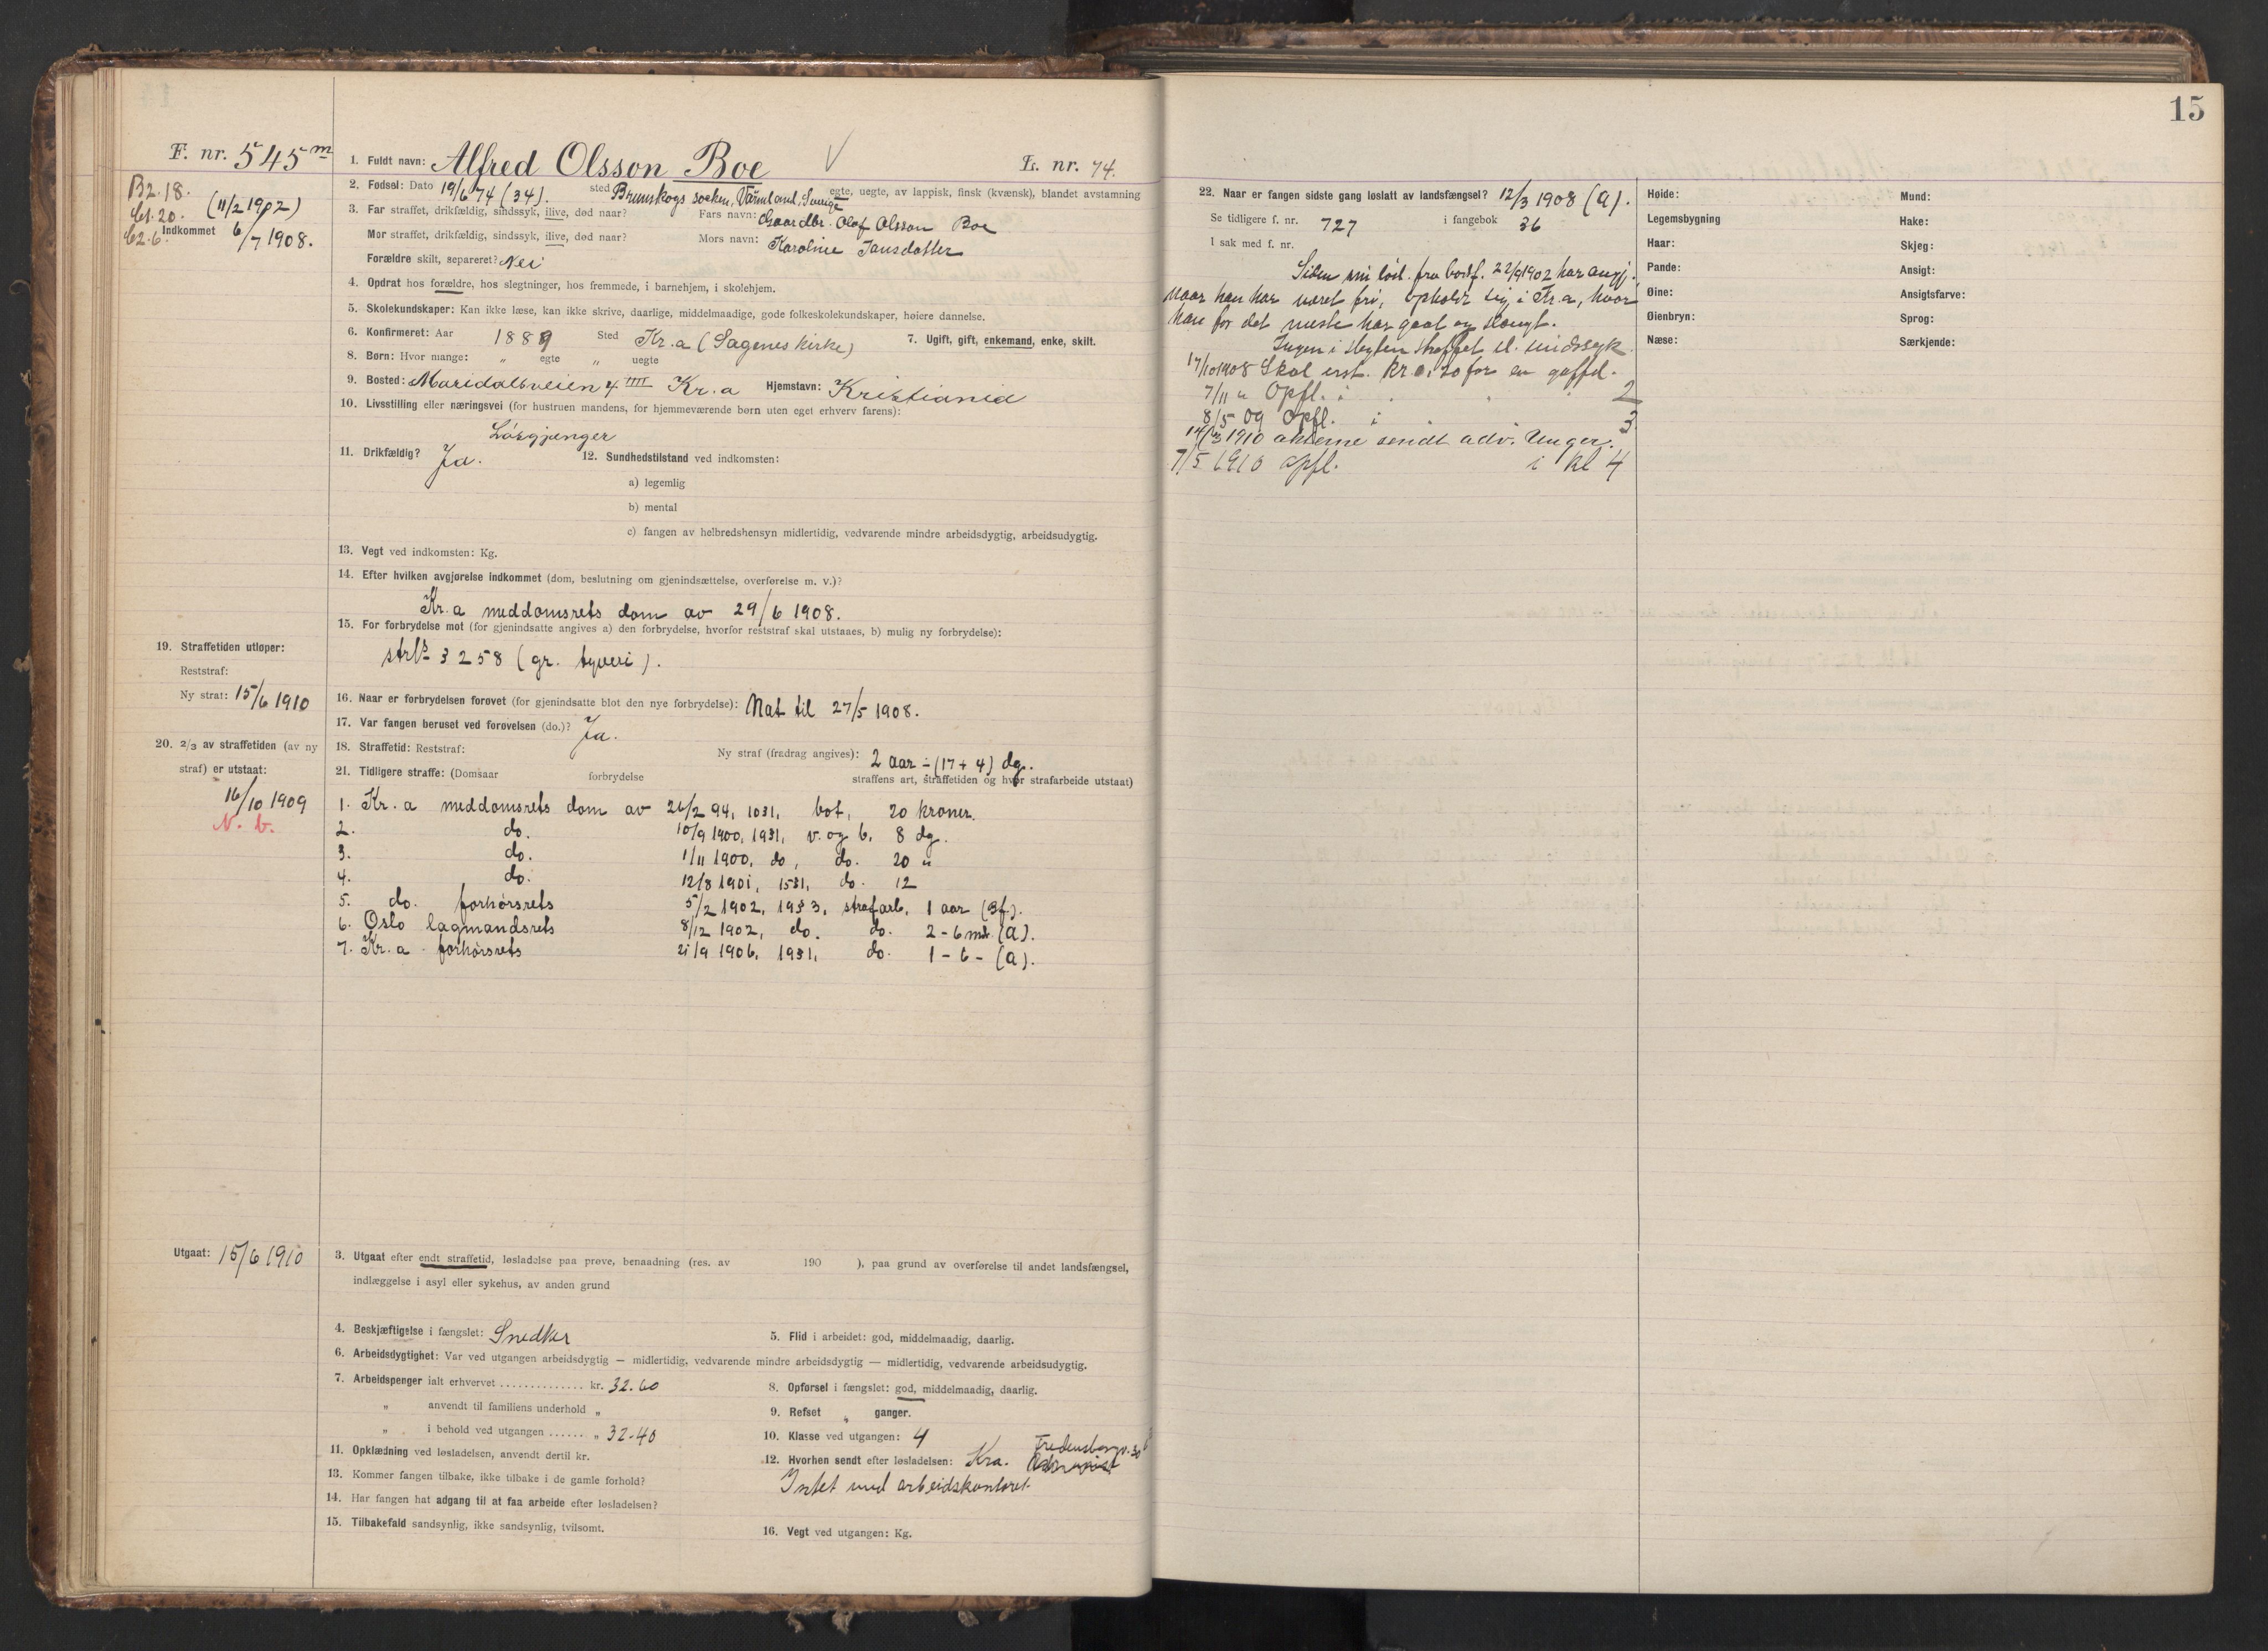 15
F. nr. 545 m
1. Fuldt navn: Alfred Olsson Boe V L. nr. 74.
B2. 18.
C1. 20. (11/2 1902)
C2. 6. Indkommet 6/7 1908.
2. Fødsel: Dato 19/6 74 (34). sted Brunskogs socken, Värmland, Sverige egte, uegte, av lappisk, finsk (kvænsk), blandet avstamning
3. Far straffet, drikfældig, sindssyk, ilive, død naar? Fars navn: Gaardbr. Olof Olsson Boe
Mor straffet, drikfældig, sindssyk, ilive, død naar? Mors navn: Karoline Jansdatter
Forældre skilt, separeret? Nei
4. Opdrat hos forældre, hos slegtninger, hos fremmede, i barnehjem, i skolehjem.
5. Skolekundskaper: Kan ikke læse, kan ikke skrive, daarlige, middelmaadige, gode folkeskolekundskaper, høiere dannelse.
6. Konfirmeret: Aar 1889 Sted Kr.a (Sagenes kirke) 7. Ugift, gift, enkemand, enke, skilt.
8. Børn: Hvor mange: " egte " uegte
9. Bosted: Maridalsveien 4 IIII Kr.a Hjemstavn: Kristiania
10. Livsstilling eller næringsvei (for hustruen mandens, for hjemmeværende børn uten eget erhverv farens):
Løsgjænger
11. Drikfældig? Ja. 12. Sundhedstilstand ved indkomsten:
a) legemlig
b) mental
c) fangen av helbredshensyn midlertidig, vedvarende mindre arbeidsdygtig, arbeidsudygtig.
13. Vegt ved indkomsten: Kg.
14. Efter hvilken avgjørelse indkommet (dom, beslutning om gjenindsættelse, overførelse m. v.)?
Kr.a meddomsrets dom av 29/6 1908.
15. For forbrydelse mot (for gjenindsatte angives a) den forbrydelse, hvorfor reststraf skal utstaaes, b) mulig ny forbrydelse):
strl's § 258 (gr. tyveri).
19. Straffetiden utløper:
Reststraf:
Ny straf: 15/6 1910
16. Naar er forbrydelsen forøvet (for gjenindsatte blot den nye forbrydelse): Nat til 27/5 1908.
17. Var fangen beruset ved forøvelsen (do.)? Ja.
20. 2/3 av straffetiden (av ny
straf) er utstaat:
16/10 1909
N. b.
18. Straffetid: Reststraf: Ny straf (fradrag angives): 2 aar ÷ (17 + 4) dg.
21. Tidligere straffe: (Domsaar forbrydelse straffens art, straffetiden og hvor strafarbeide utstaat)
1. Kr.a meddomsrets dom av 26/2 94, 1031, bot, 20 kroner.
2. do. 10/9 1900, 1931, v. og b. 8 dg.
3. do. 1/11 1900, do, do. 20 "
4. do. 12/8 1901, 1531, do. 12
5. do. forhørsrets 5/2 1902, 1933, strafarb. 1 aar (Bf.).
6. Oslo lagmandsrets 8/12 1902, do. do. 2 - 6 md. (A).
7. Kr.a forhørsrets 21/9 1906, 1931, do. 1 - 6 - (A).
Utgaat: 15/6 1910
3. Utgaat efter endt straffetid, løsladelse paa prøve, benaadning (res. av 190 ), paa grund av overførelse til andet landsfængsel,
indlæggelse i asyl eller sykehus, av anden grund
4. Beskjæftigelse i fængslet: Snedker 5. Flid i arbeidet: god, middelmaadig, daarlig.
6. Arbeidsdygtighet: Var ved utgangen arbeidsdygtig — midlertidig, vedvarende mindre arbeidsdygtig — midlertidig, vedvarende arbeidsudygtig.
7. Arbeidspenger ialt erhvervet .............. kr. 32.60 8. Opførsel i fængslet: god, middelmaadig, daarlig.
" anvendt til familiens underhold " 9. Refset " ganger.
" i behold ved utgangen ...... " 32-40 10. Klasse ved utgangen: 4
11. Opklædning ved løsladelsen, anvendt dertil kr. 12. Hvorhen sendt efter løsladelsen: Kra. Fredensborgv. 30
Intet ved arbeidskontoret.
13. Kommer fangen tilbake, ikke tilbake i de gamle forhold?
14. Har fangen hat adgang til at faa arbeide efter løsladelsen?
15. Tilbakefald sandsynlig, ikke sandsynlig, tvilsomt. 16. Vegt ved utgangen: Kg.
22. Naar er fangen sidste gang løslatt av landsfængsel? 12/3 1908 (A).
Se tidligere f. nr. 727 i fangebok 36
I sak med f. nr.
Siden sin løsl. fra bodsf. 22/9 1902 har angj.
naar han har været fri, opholdt sig i Kr.a, hvor
han for det meste har gaat og slængt.
Ingen i slegten straffet el. sindssyk.
17/10 1908 Skal erst. kr. 0,20 for en gaffel.
7/11 " Opfl. i 2
8/5 09 Opfl. i 3
14/3 1910 akterne sendt adv. Unger.
7/5 1910 opfl. i kl 4
Høide:
Legemsbygning
Haar:
Pande:
Øine:
Øienbryn:
Næse:
Mund:
Hake:
Skjeg:
Ansigt:
Ansigtsfarve:
Sprog:
Særkjende: